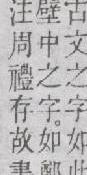 古文之字如此
壁中之字。如鄭
注周禮有故書